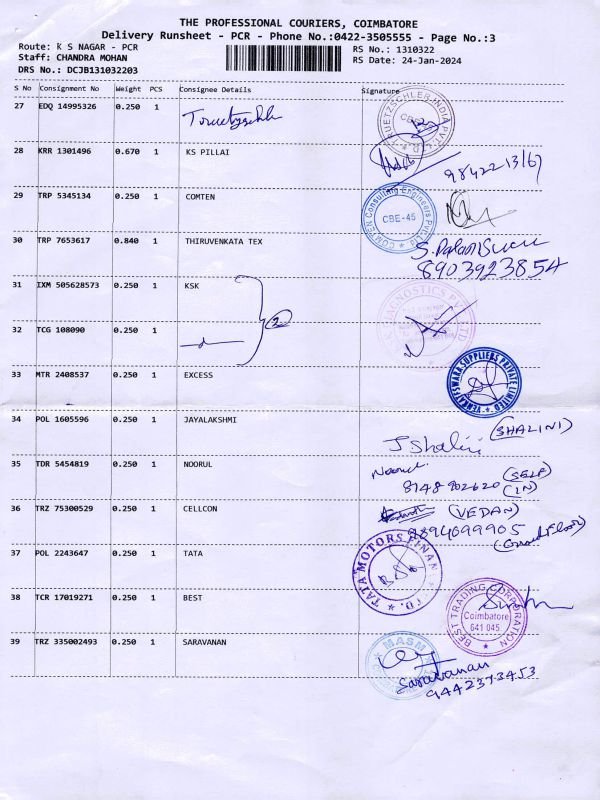 THE PROFESSIONAL COURIERS, COIMBATORE
Delivery Runsheet - PCR - Phone No.:0422-3505555 - Page No.:3
Route: K S NAGAR - PCR
RS No.: 1310322
Staff: CHANDRA MOHAN
RS Date: 24-Jan-2024
DRS No.: DCJB131032203
S No Consignment No Weight PCS Consignee Details Signature
27 EDQ 14995326 0.250 1
28 KRR 1301496 0.670 1 KS PILLAI
29 TRP 5345134 0.250 1 COMTEN
COMTEN Consulting Engineers Pvt Ltd
CBE-45
30 TRP 7653617 0.840 1 THIRUVENKATA TEX
8903923854
31 IXM 505628573 0.250 1 KSK
2
32 TCG 108090 0.250 1
33 MTR 2408537 0.250 1 EXCESS
VENKATESWARA SUPPLIERS PRIVATE LIMITED
34 POL 1605596 0.250 1 JAYALAKSHMI
J Shalini (SHALINI)
35 TDR 5454819 0.250 1 NOORUL
Noorul (SELF)
8148 902620 (IN)
36 TRZ 75300529 0.250 1 CELLCON
(VEDAN)
9894099905
(Ground Floor)
37 POL 2243647 0.250 1 TATA
TATA MOTORS FINAN
38 TCR 17019271 0.250 1 BEST
BEST TRADING CORPORATION
Coimbatore
641 045.
39 TRZ 335002493 0.250 1 SARAVANAN
MASM
Saravanan
9442373453